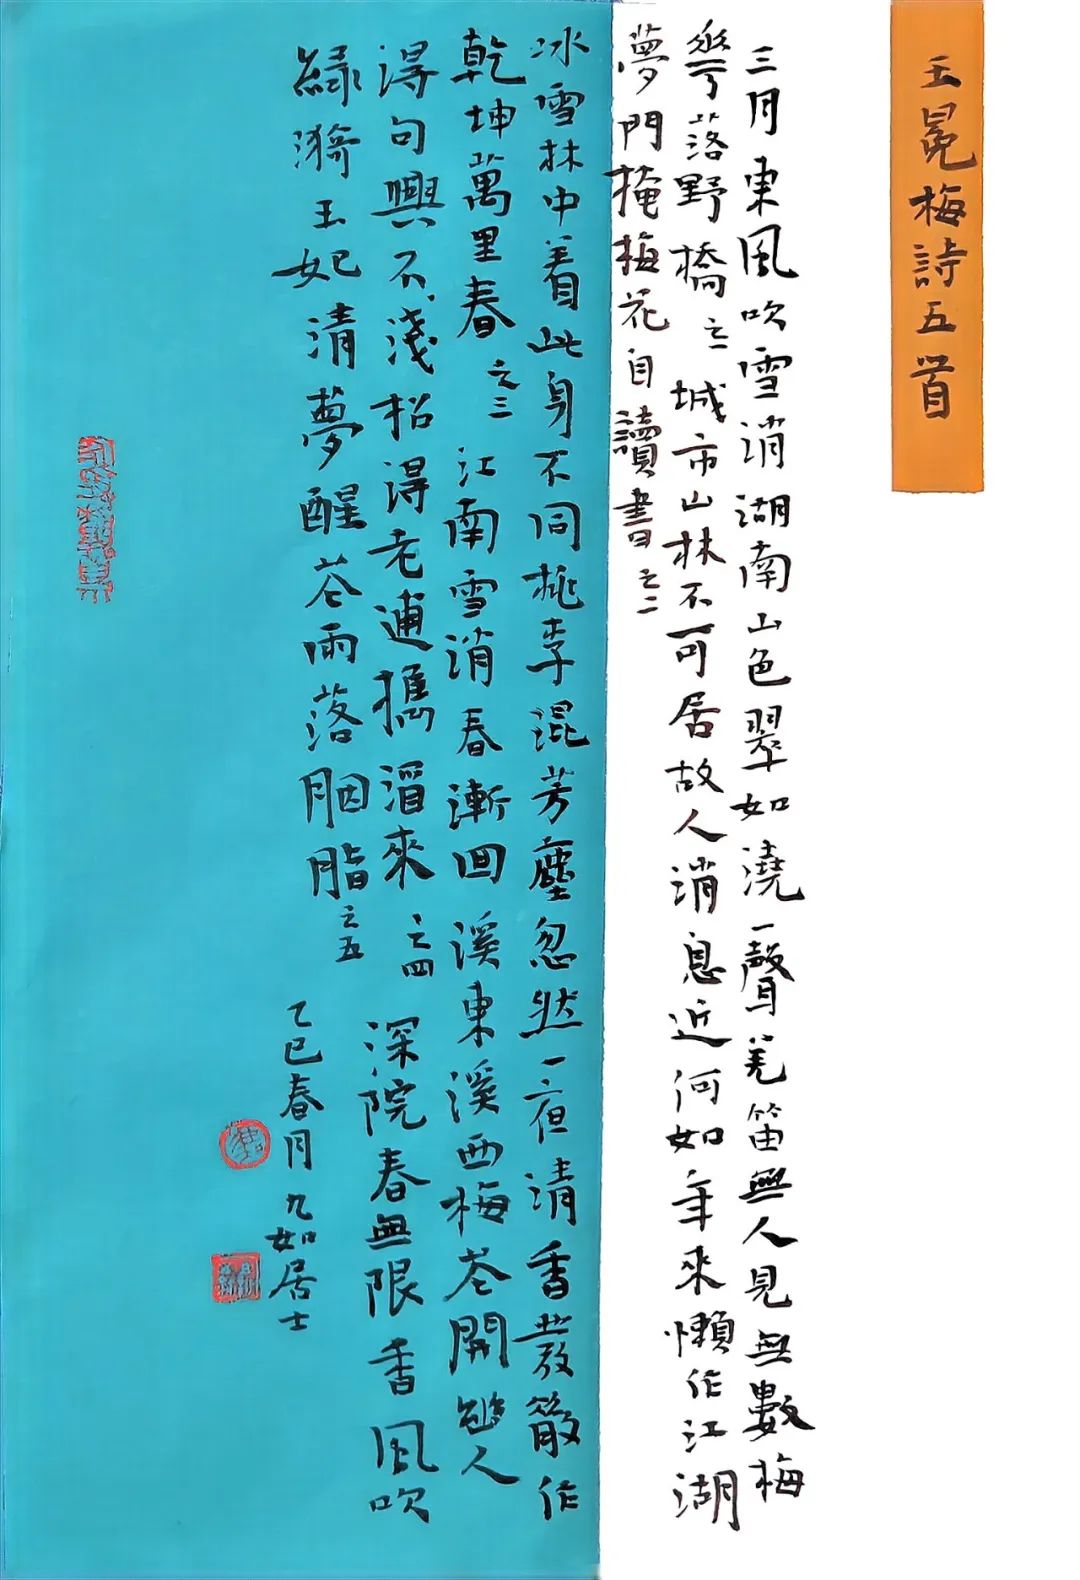 王冕梅詩五首
三月東風吹雪消湖南山色翠如澆一聲羌笛無人見無數梅
華落野橋之一城市山林不可居故人消息近何如年來懶作江湖
夢門掩梅花自讀書之二
冰雪林中着此身不同桃李混芳塵忽然一夜清香發散作
乾坤萬里春之三江南雪消春漸回溪東溪西梅花開詩人
得句興不淺招得老逋攜酒來之四深院春無限香風吹
綠漪玉妃清夢醒花雨落胭脂之五
乙巳春月九如居士